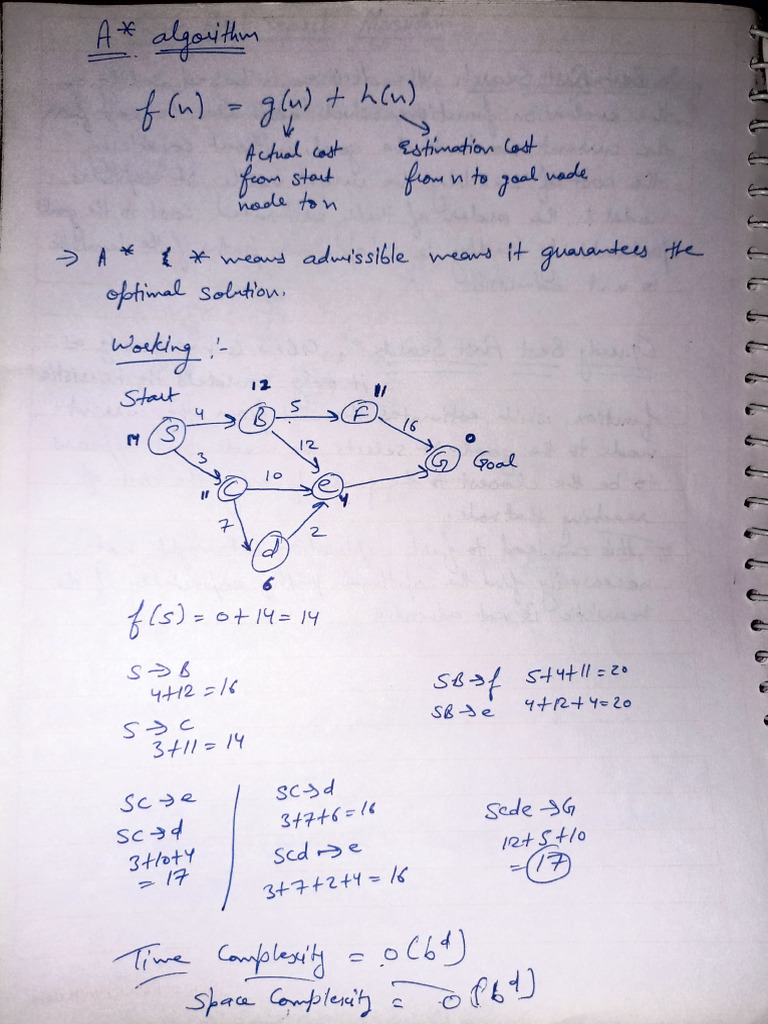 A* algorithm
f(n) = g(n) + h(n)
Actual cost
from start
node to n
Estimation Cost
from n to goal node
→ A* * means admissible means it guarantees the
optimal solution.
Working :-
Start
14 S 4 B 12 5 F 11 16 G 0 Goal
3 C 11 10 e 4 12
7 d 6 2
f(s) = 0+14 = 14
S→B
4+12 = 16
S→C
3+11 = 14
SB→f 5+4+11=20
SB→e 4+12+4=20
SC→e
SC→d
3+10+4
= 17
SC→d
3+7+6=16
Scd→e
3+7+2+4=16
Scde→G
12+5+10
= 17
Time Complexity = O(b^d)
Space Complexity = O(b^d)